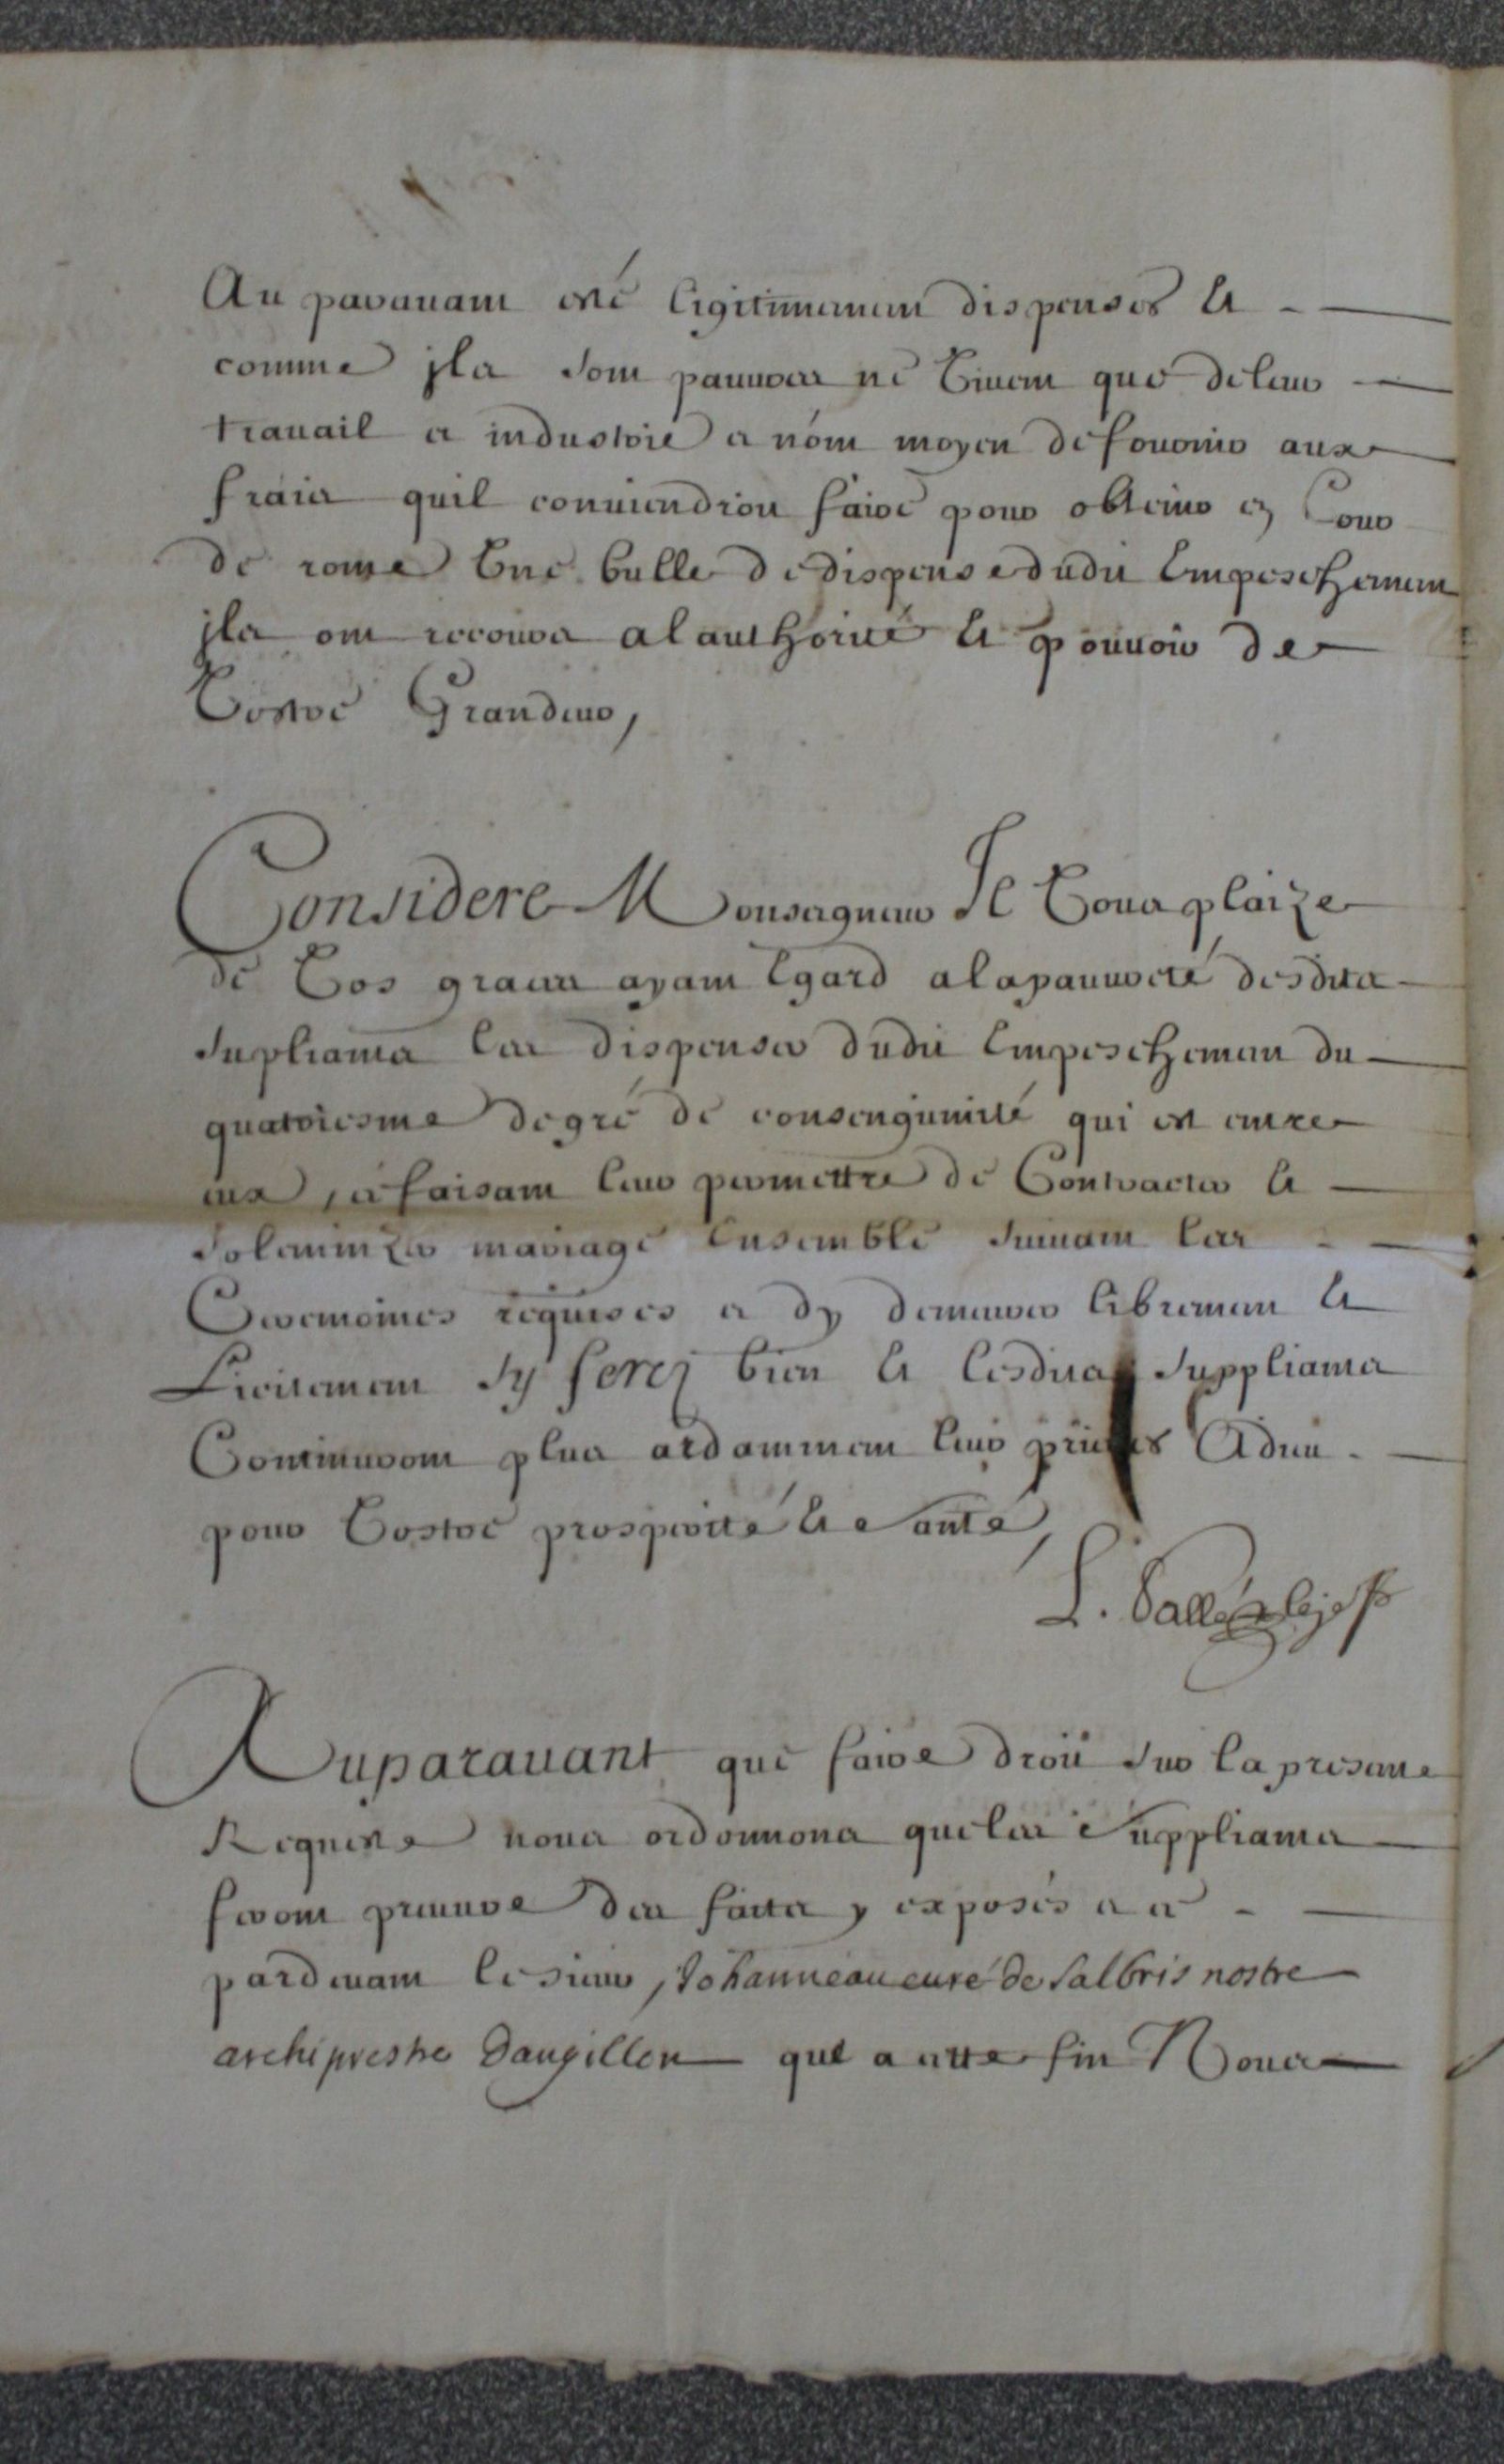 Au paravant esté legitimement dispensés Et
comme jls sont pauvres ne vivent que de leur
travail et industrie et n'ont moyen de fournir aux
fraits quil conviendroit faire pour obtenir en Cour
de rome une bulle de dispense dudit Empeschement
jls ont recours a lauthorité Et pouvoir de
Vostre Grandeur,
Consideré Monseigneur Il vous plaize
de vos graces ayant Egard a la pauvreté desdits
supliants les dispenser dudit Empeschement du
quatriesme degré de consenguinité qui est entre
eux, ce faisant leur permettre de Contracter Et
solemnizer mariage Ensemble suivant les
Ceremoines requises et dy demeurer librement Et
Licitement sy ferez bien Et lesdits suppliants
Continuront plus ardamment leurs prieres A dieu
pour Vostre prosperitté Et santé,
L. Vallée
Auparavant que faire droit sur la presente
Requeste nous ordonnons que les suppliants
feront preuve des faits y exposés et ce
pardevant le sieur Johanneau curé de Salbris nostre
archiprestre Dangillon que a cette fin Nous